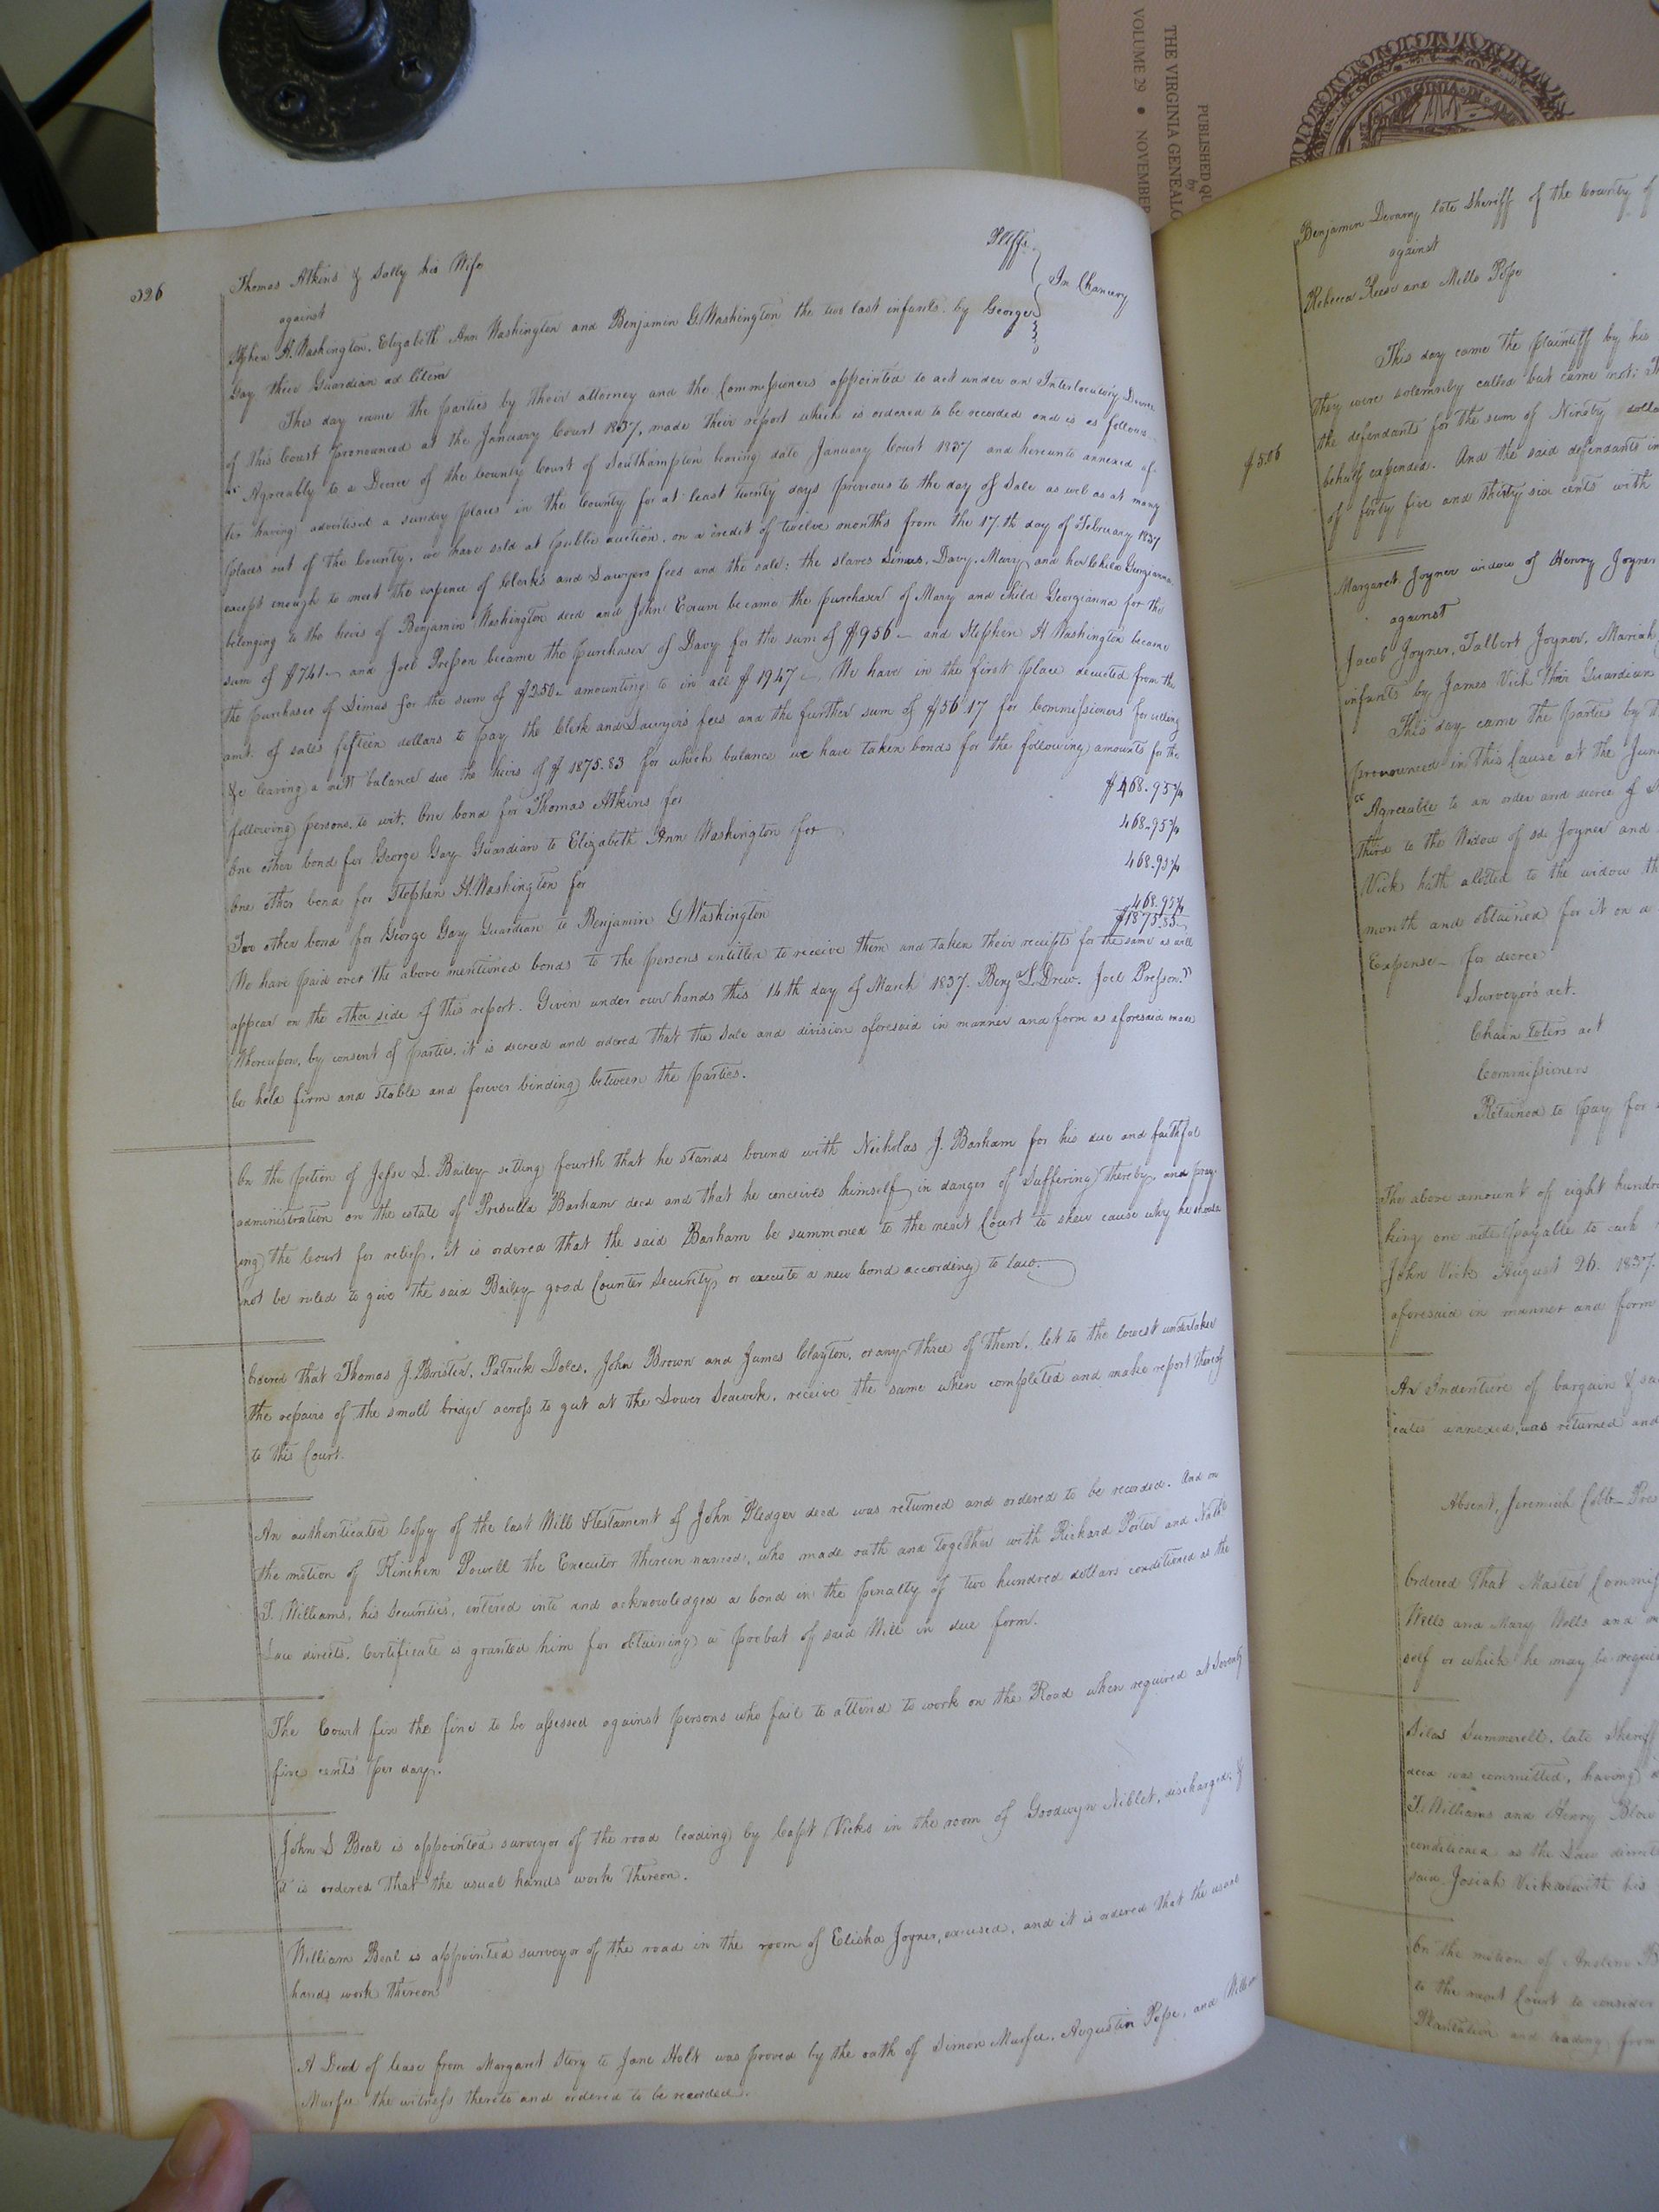 THE VIRGINIA GENEALO
VOLUME 29 • NOVEMBER
PUBLISHED QU
by
VIRGINIA IN AM
326
Thomas Atkins & Sally his Wife Pltffs.
against
In Chancery
Stephen H. Washington, Elizabeth Ann Washington and Benjamin G. Washington the two last infants by George
Gay their Guardian ad litem
This day came the parties by their attorney and the Commissioners appointed to act under an Interlocutory Decree
of this Court pronounced at the January Court 1837, made their report which is ordered to be recorded and is as follows.
"Agreeably to a Decree of the County Court of Southampton bearing date January Court 1837 and hereunto annexed af-
ter having advertised a sundry places in the County for at least twenty days previous to the day of Sale as well as at many
places out of the County, we have sold at public auction, on a credit of twelve months from the 17.th day of February 1837
except enough to meet the expence of Clerks and Lawyers fees and the sale; the slaves Simus, Davy, Mary and her Child Georgianna
belonging to the heirs of Benjamin Washington decd and John Exum became the purchaser of Mary and child Georgianna for the
sum of $741 and Joel Presson became the purchaser of Davy for the sum of $956 and Stephen H Washington became
the purchaser of Simus for the sum of $250 amounting to in all $1947 We have in the first place deducted from the
amt. of sales fifteen dollars to pay the Clerk and Lawyers fees and the further sum of $56.17 for Commissioners for selling
&c leaving a nett balance due the heirs of $1875.83 for which balance we have taken bonds for the following amounts for the
following persons, to wit; One bond for Thomas Atkins for $468.95¾
One other bond for George Gay Guardian to Elizabeth Ann Washington for 468.95¾
One other bond for Stephen H. Washington for 468.95¾
Too other bond for George Gay Guardian to Benjamin G Washington 468.95¾
$1875.83
We have paid over the above mentioned bonds to the persons intitled to receive them and taken their receipts for the same as will
appear on the other side of this report. Given under our hands this 14th day of March 1837. Benj L. Drew. Joel Presson."
Whereupon, by consent of parties, it is decreed and ordered that the Sale and division aforesaid in manner and form as aforesaid made
be held firm and stable and forever binding between the parties.
On the petion of Jesse L. Bailey setting fourth that he stands bound with Nicholas J. Barham for his due and faithful
administration on the estate of Presulla Barham decd and that he conceives himself in danger of Suffering thereby, and pray-
ing the Court for relief, it is ordered that the said Barham be summoned to the next Court to shew cause why he should
not be ruled to give the said Bailey good Counter Security, or execute a new bond according to law.
Ordered that Thomas J. Brister, Patrick Doles, John Brown and James Clayton, or any three of them, let to the lowest undertaker
the repairs of the small bridge across to gut at the Lower Seacock, receive the same when completed and make report thereof
to this Court.
An authenticated Copy of the last Will & testament of John Pledger decd was returned and ordered to be recorded. And on
the motion of Kinchen Powell the Executor therein named, who made oath and together with Rickard Porter and Nath.l
T. Williams, his Securities, intered into and acknowledged a bond in the penalty of two hundred dollars conditioned as the
Law directs. Certificate is granted him for obtaining a probat of said Will in due form.
The Court fix the fine to be assessed against persons who fail to attend to work on the Road when required at Seventy
five cents per day.
John D Beal is appointed surveyor of the road leading by Capt Vicks in the room of Goodwyn Niblet, discharged; &
it is ordered that the usual hands work thereon.
William Beal is appointed surveyor of the road in the room of Elisha Joyner, excused, and it is ordered that the usual
hands work thereon
A Deed of lease from Margaret Story to Jane Holt was proved by the oath of Simon Murfee, Augustin Pope, and
Murfee the witness thereto and ordered to be recorded.
Benjamin Devany late Sheriff of the County of
against
Rebecca Reese and Mills Pope
This day came the plaintiff by his
they were solemnly called but came not;
the defendants for the sum of Ninety dolla
$5.06
behalf expended. And the said defendants in
of forty five and thirty six cents with
Margaret Joyner widow of Henry Joyner
against
Jacob Joyner, Talbert Joyner, Mariah
infants by James Vick their Guardian
This day came the parties by
pronounced in this Cause at the Jun
"Agreeable to an order and decree of
third to the Widow of sd. Joyner and
Vick hath aloted to the widow th
month and obtained for it on a
Expense for decree
Surveyors act.
Chain toters act
Commissioners
Retained to pay for
The above amount of eight hundr
king one note payable to each
John Vick August 26. 1837.
aforesaid in manner and form
An Indenture of bargain & sa
cates annexed, was returned and
Absent, Jeremiah Cobb Pres
Ordered that Master Commis
Wells and Mary Wells and
self or which he may be requi
Silas Summerell, late Sheriff
decd was committed, having
T. Williams and Henry Blow
conditioned as the Law direct
said Josiah Vick with his
On the motion of
to the next Court to consider
Plantation and leading from